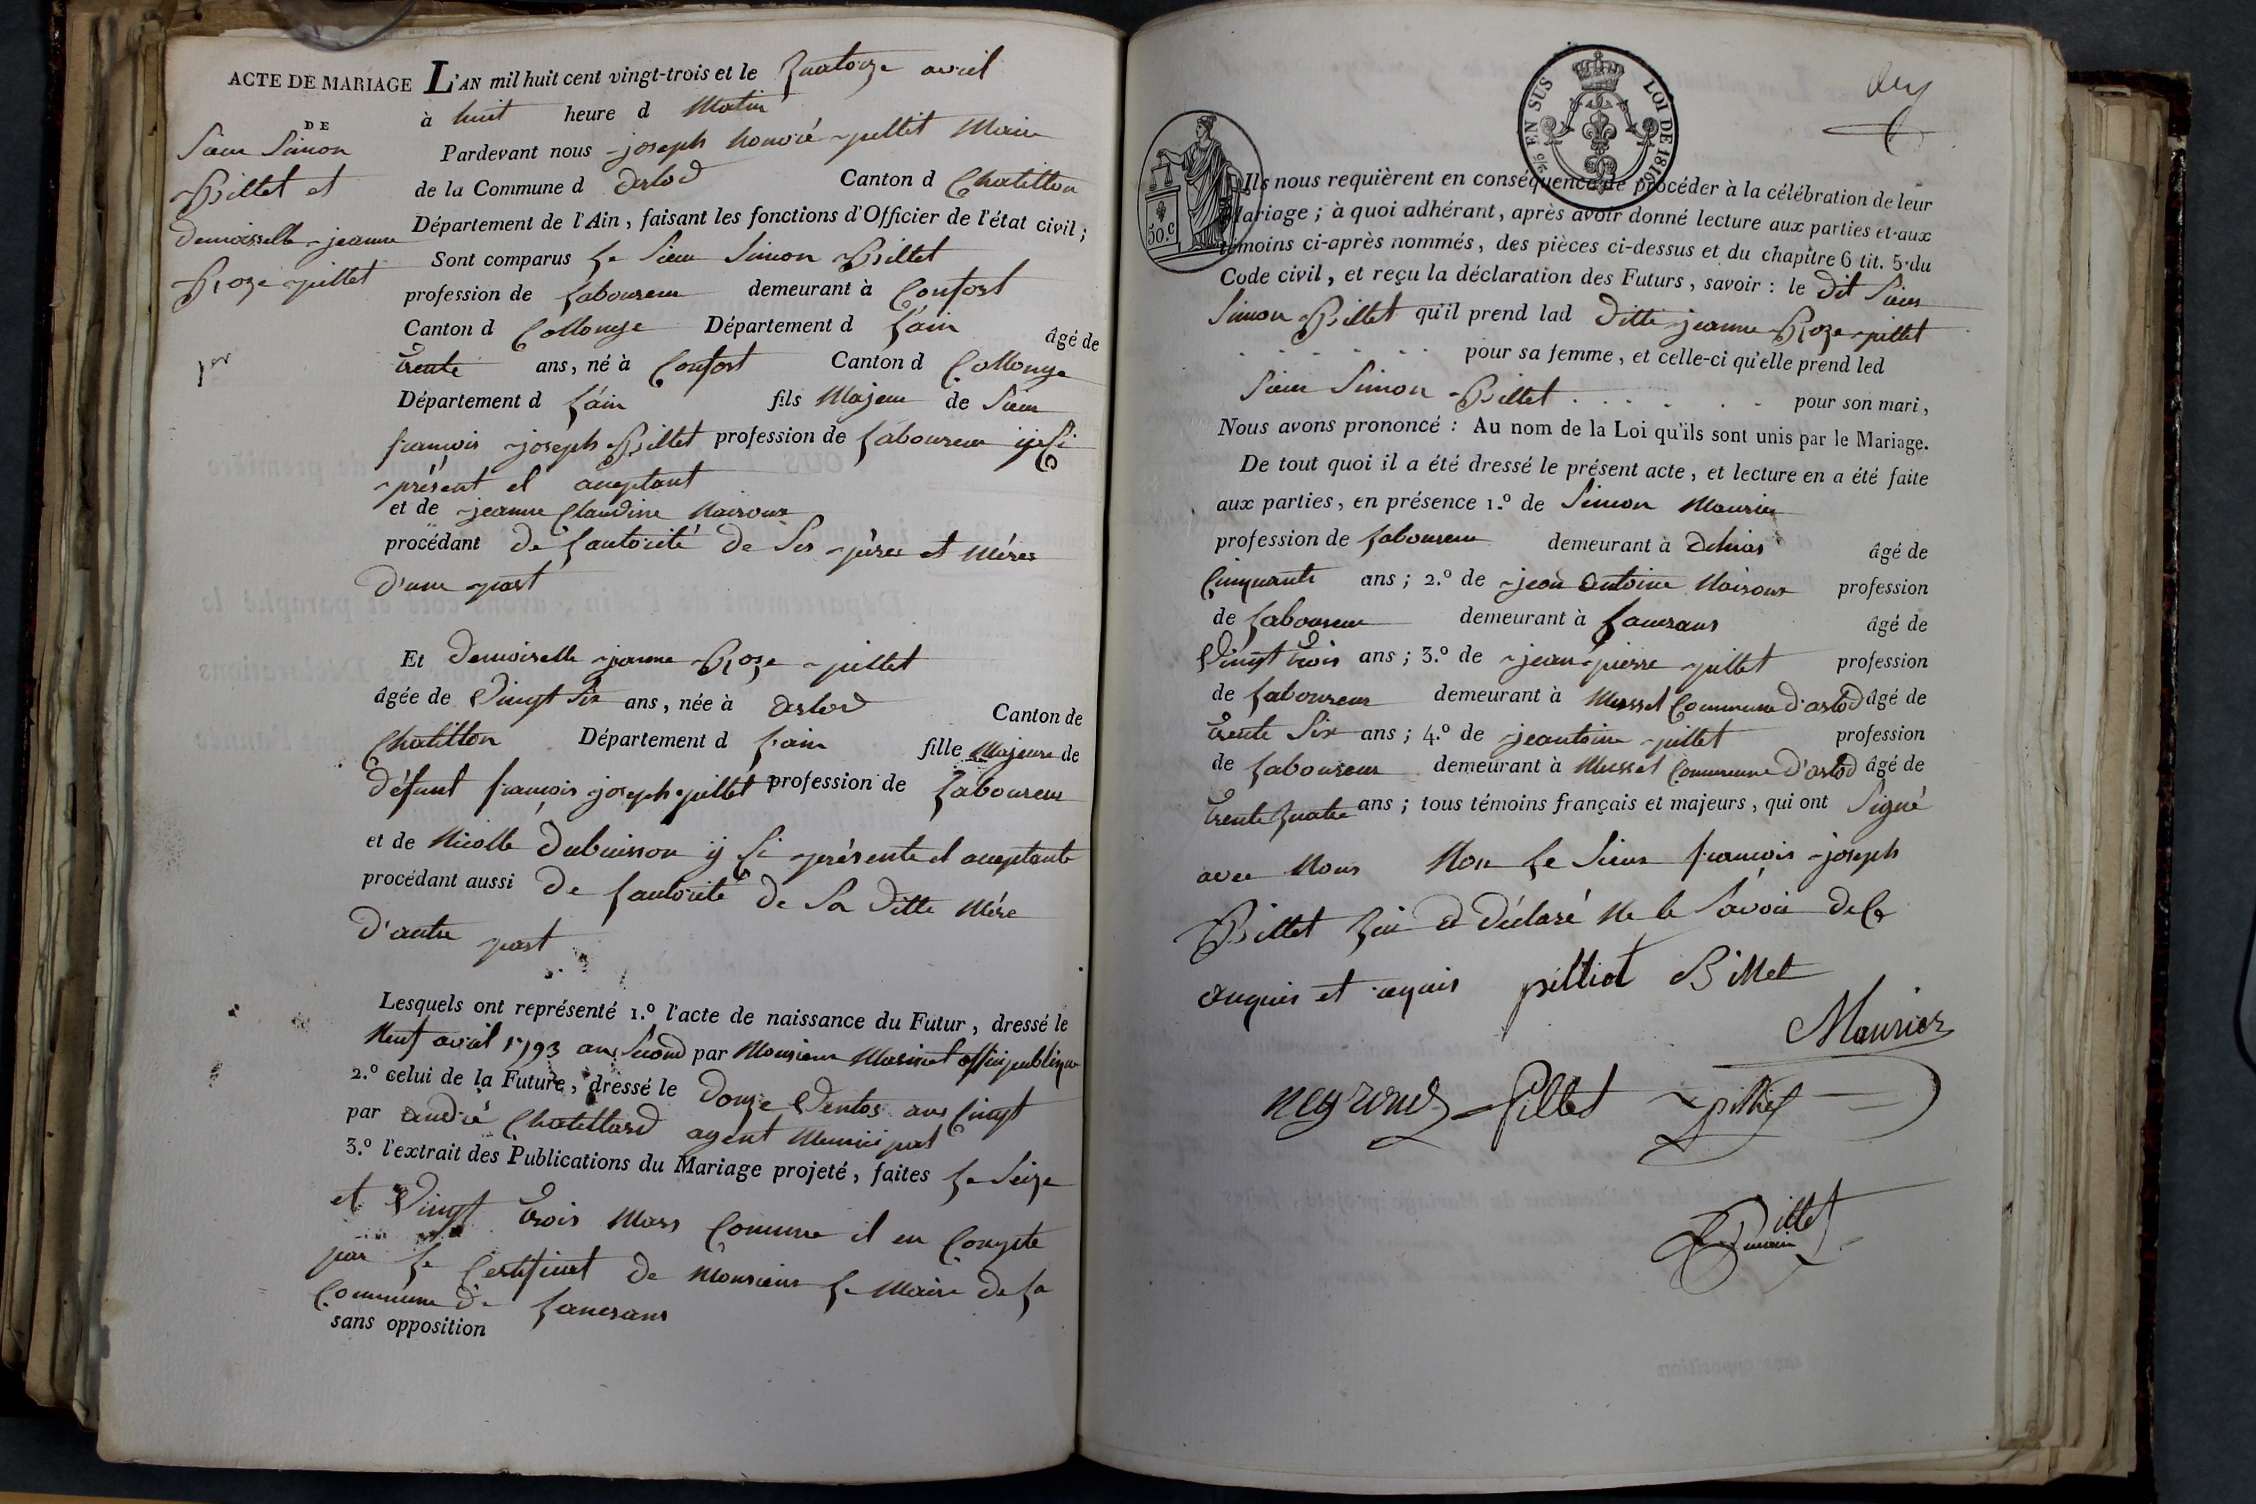 ACTE DE MARIAGE L'AN mil huit cent vingt-trois et le quatorze avril
à huit heure d Matin
DE
Sieur Simon
Billet et
demoisselle jeanne
Roze pillet
1er
Pardevant nous joseph honoré pillit Maire
de la Commune d arlod Canton d Chatillon
Département de l'Ain, faisant les fonctions d'Officier de l'état civil;
Sont comparus Le Sieur Simon Billet
profession de Laboureur demeurant à Confort
Canton d Collonge Département d L'ain âgé de
trente ans, né à Confort Canton d Collonge
Département d L'ain fils Majeur de Sieur
françois joseph Billet profession de Laboureur ici
présent et acceptant
et de jeanne Claudine Nairoux
procédant de L'autorité de Ses pères et Mères
d'une part
Et demoiselle jeanne Roze pillet
âgée de Vingt Six ans, née à arlod Canton de
Chatillon Département d L'ain fille Majeure de
défunt françois joseph pillet profession de Laboureur
et de Nicolle dubuisson y Ci présente et acceptante
procédant aussi De L'autorité de Sa Ditte Mère
D'autre part
Lesquels ont représenté 1.º l'acte de naissance du Futur, dressé le
Neuf avril 1793 an Second par Monsieur Marinet officier publique
2.º celui de la Future, dressé le Douze Ventos an Cinqt
par andré Chatillard agent Municipal
3.º l'extrait des Publications du Mariage projeté, faites Le Seize
et Vingt trois Mars Comme il en Compte
par Le Certificat de Monsieur Le Maire de La
Commune de Lancrans
sans opposition
EN SUS LOI DE 1816
50.c
Ils nous requièrent en conséquence de procéder à la célébration de leur
Mariage; à quoi adhérant, après avoir donné lecture aux parties et aux
témoins ci-après nommés, des pièces ci-dessus et du chapitre 6 tit. 5 du
Code civil, et reçu la déclaration des Futurs, savoir: le dit Sieur
Simon Billet qu'il prend lad Ditte jeanne Roze pillet
pour sa femme, et celle-ci qu'elle prend led
Sieur Simon Billet pour son mari,
Nous avons prononcé: Au nom de la Loi qu'ils sont unis par le Mariage.
De tout quoi il a été dressé le présent acte, et lecture en a été faite
aux parties, en présence 1.º de Simon Maurier
profession de Laboureur demeurant à âgé de
Cinquante ans; 2.º de jean antoine Nairoux profession
de Laboureur demeurant à Lancrans âgé de
Vingt trois ans; 3.º de jean pierre pillet profession
de Laboureur demeurant à Mussel Commune d'arlod âgé de
trente Six ans; 4.º de jeantoine pillet profession
de Laboureur demeurant à Mussel Commune d'arlod âgé de
trente quatre ans; tous témoins français et majeurs, qui ont Signé
avec Nous Non Le Sieur françois joseph
Billet qui a déclaré Ne le Savoir de Ce
enquis et requis pilliet Billet
Maurier
neyroud Pillet pilliet
Pillet
maire